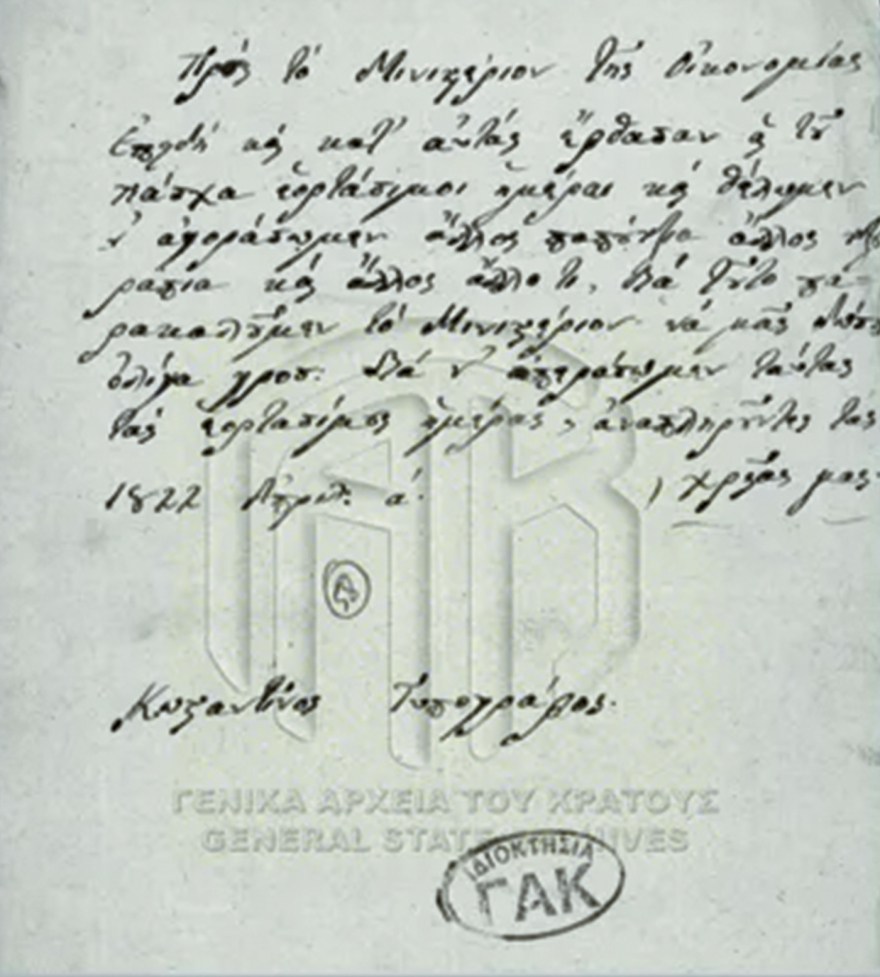 Πρὸς τὸ Μινιστέριον τῆς Οἰκονομίας
Ἐπειδὴ καὶ κατ' αὐτὰς ἔφθασαν ᾑ τοῦ
Πάσχα ἑορτάσιμοι ἡμέραι καὶ θέλωμεν
ν' ἀγοράσωμεν ἄλλος παπούτζια ἄλλος
καὶ ἄλλος ἄλλο τι, διὰ τοῦτο πα-
ρακαλοῦμεν τὸ Μινιστέριον νὰ μᾶς
ὀλίγα γροσ: διὰ ν' ἀπεράσωμεν ταύτας
τὰς ἑορτασίμους ἡμέρας, ἀναπληροῦντες τὰς
χρείας μας.
1822 Ἀπριλ: α:
Κωνσταντῖνος Τυπογράφος.
ΓΕΝΙΚΑ ΑΡΧΕΙΑ ΤΟΥ ΚΡΑΤΟΥΣ
GENERAL STATE ARCHIVES
ΙΔΙΟΚΤΗΣΙΑ
ΓΑΚ